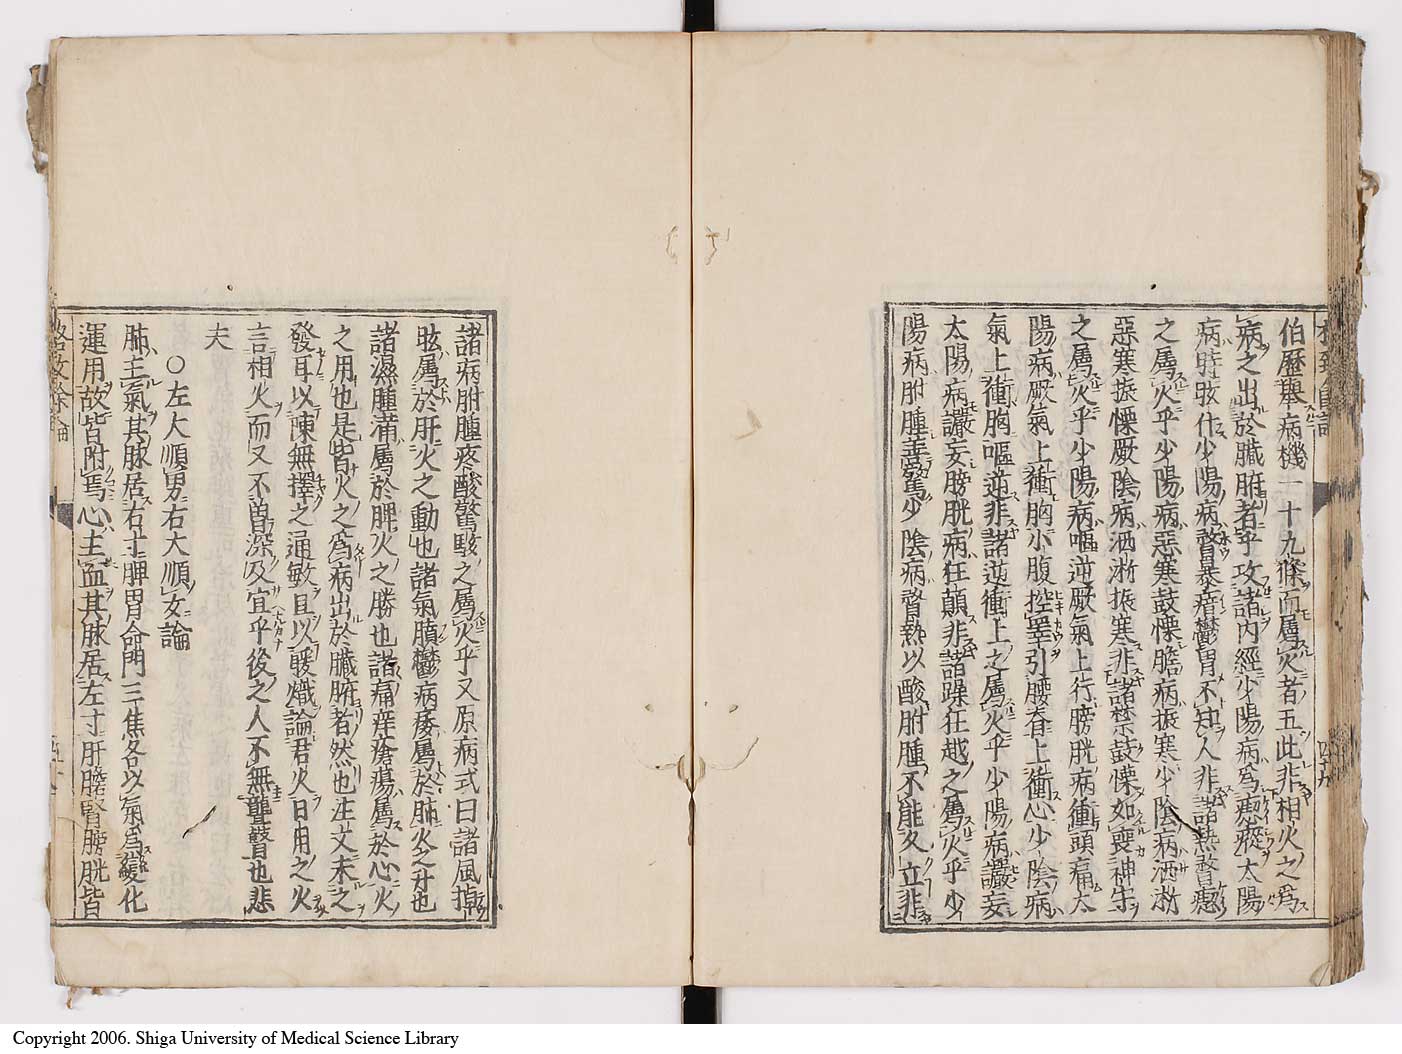 伯歷擧病機一十九條而屬火者五此非相火之爲
病之出於臟腑者乎攻諸內經少陽病爲瘛瘲太陽
病時眩仆少陽病瞀暴瘖鬱冒不知人非諸熱瞀瘛
之屬火乎少陽病惡寒鼓慄膽病振寒少陰病洒淅
惡寒振慄厥陰病洒淅振寒非諸禁鼓慄如喪神守
之屬火乎少陽病嘔逆厥氣上行膀胱病衝頭痛太
陽病厥氣上衝胸小腹控睪引腰脊上衝心少陰病
氣上衝胸嘔逆非諸逆衝上之屬火乎少陽病讝妄
太陽病讝妄膀胱病狂顛非諸躁狂越之屬火乎少
陽病胕腫善驚少陰病瞀熱以酸胕腫不能久立非
諸病胕腫疼酸驚駭之屬火乎又原病式曰諸風掉
眩屬於肝火之動也諸氣膹鬱病痿屬於肺火之升也
諸濕腫滿屬於脾火之勝也諸痛痒瘡瘍屬於心火
之用也是皆火之爲病出於臟腑者然也注文未之
發耳以陳無擇之通敏且以暖熾論君火日用之火
言相火而又不曾深及宜乎後之人不無聾瞽也悲
夫
○左大順男右大順女論
肺主氣其脉居右寸脾胃命門三焦各以氣爲變化
運用故皆附焉心主血其脉居左寸肝膽腎膀胱皆
Copyright 2006. Shiga University of Medical Science Library